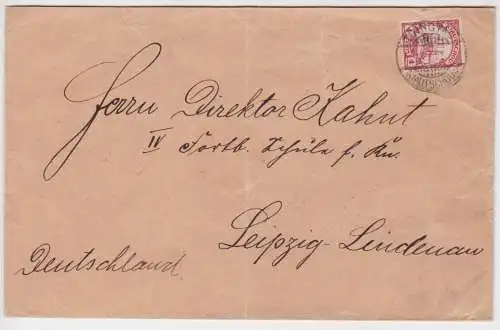 Herrn Direktor Kahnt
IV Fortb. Schule f. Kn.
Leipzig-Lindenau
Deutschland